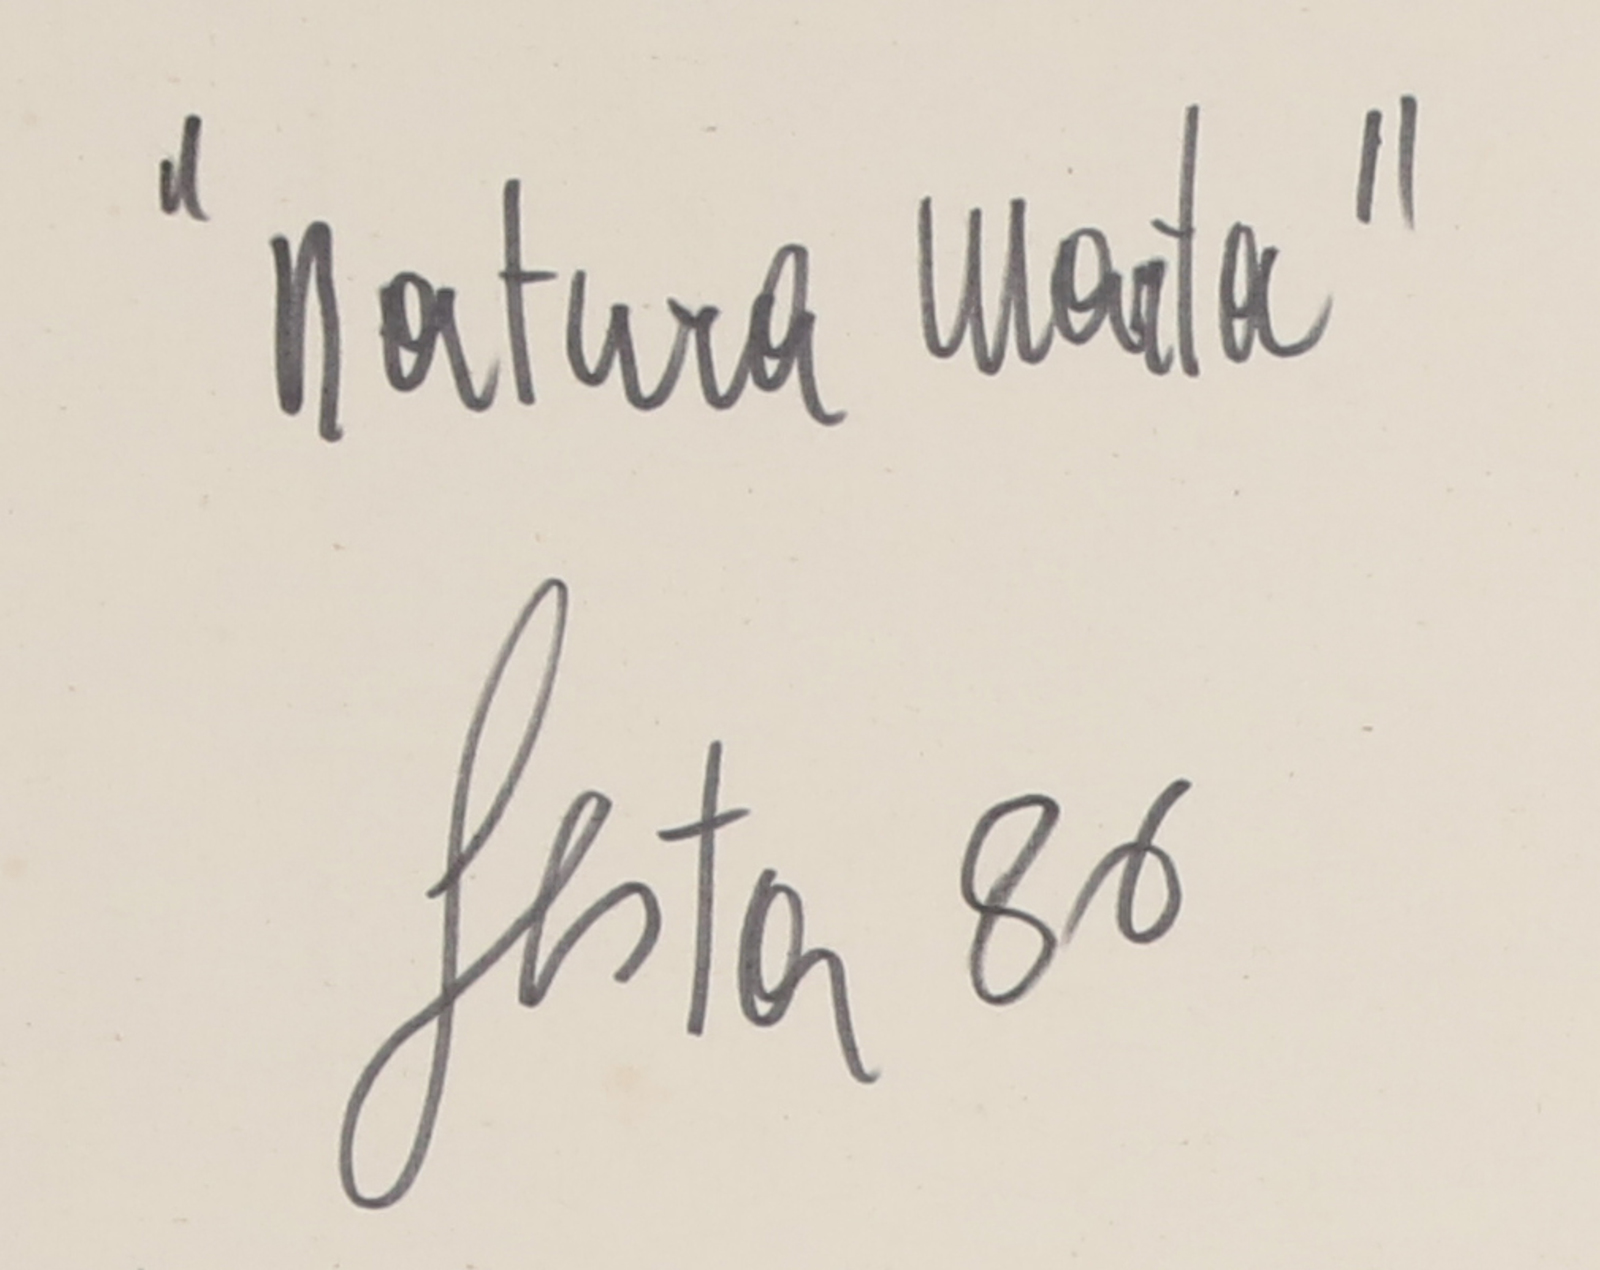 "Natura Morta"
Festa 86